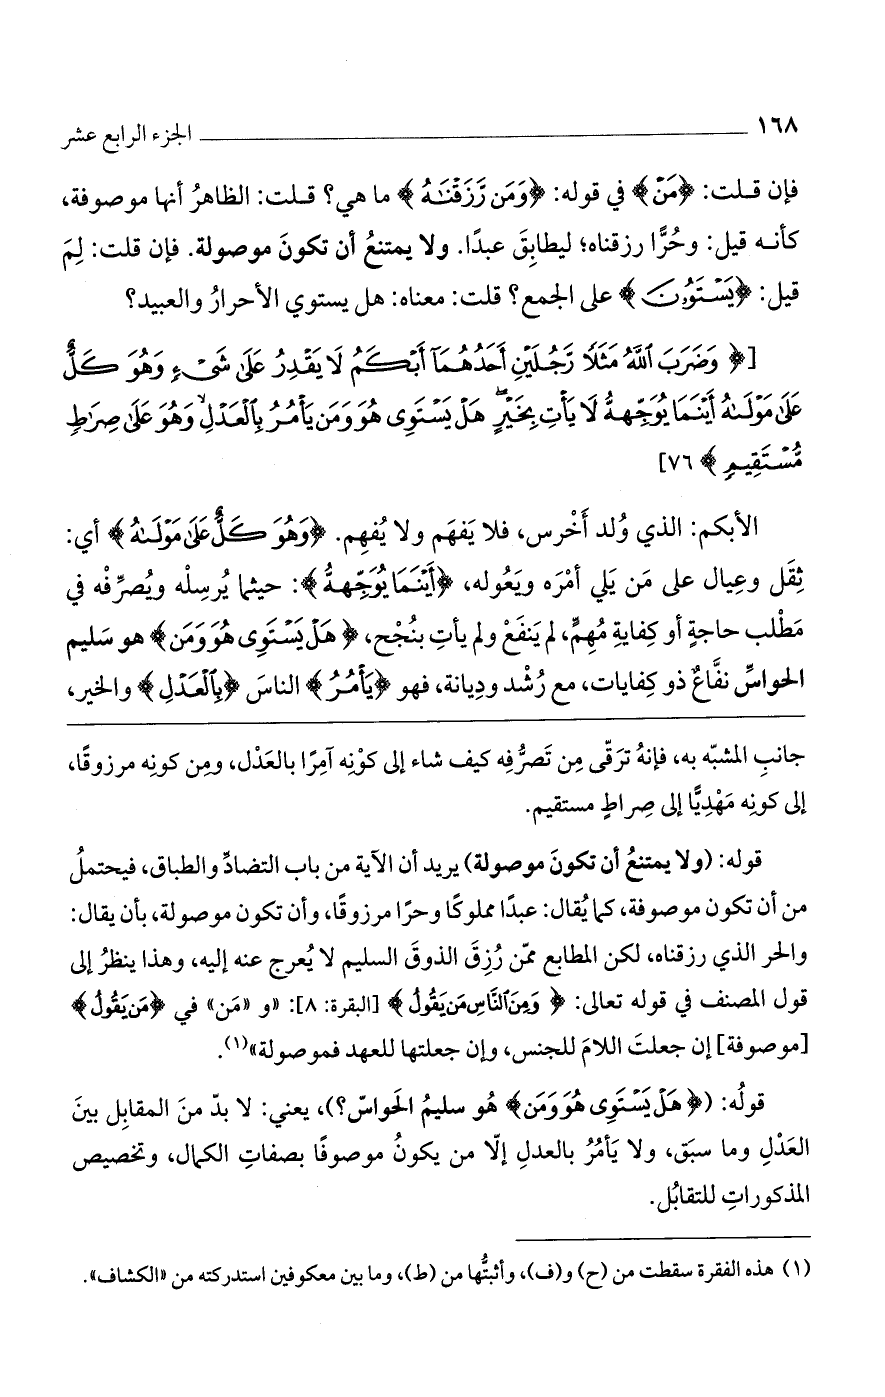 ١٦٨ ــــــــــــــــــــــــــــــــــــــــ الجزء الرابع عشر
فإن قلت: ﴿مَنْ﴾ في قوله: ﴿وَمَن رَّزَقْنَٰهُ﴾ ما هي؟ قلت: الظاهرُ أنها موصوفة،
كأنه قيل: وحُرًّا رزقناه؛ ليطابِقَ عبدًا. ولا يمتنعُ أن تكونَ موصولة. فإن قلت: لِمَ
قيل: ﴿يَسْتَوُۥنَ﴾ على الجمع؟ قلت: معناه: هل يستوي الأحرارُ والعبيد؟
[﴿وَضَرَبَ ٱللَّهُ مَثَلًا رَّجُلَيْنِ أَحَدُهُمَآ أَبْكَمُ لَا يَقْدِرُ عَلَىٰ شَىْءٍ وَهُوَ كَلٌّ
عَلَىٰ مَوْلَىٰهُ أَيْنَمَا يُوَجِّههُّ لَا يَأْتِ بِخَيْرٍ ۖ هَلْ يَسْتَوِى هُوَ وَمَن يَأْمُرُ بِٱلْعَدْلِ ۙ وَهُوَ عَلَىٰ صِرَٰطٍ
مُّسْتَقِيمٍ﴾ ٧٦]
الأبكم: الذي وُلد أَخْرس، فلا يَفهَم ولا يُفهِم. ﴿وَهُوَ كَلٌّ عَلَىٰ مَوْلَىٰهُ﴾ أي:
ثِقَل وعِيال على مَن يَلي أمْرَه ويَعُوله، ﴿أَيْنَمَا يُوَجِّههُّ﴾: حيثما يُرسِلْه ويُصرِّفْه في
مَطْلب حاجةٍ أو كِفايةِ مُهِمٍّ، لم يَنفَعْ ولم يأتِ بنُجْح، ﴿هَلْ يَسْتَوِى هُوَ وَمَن﴾ هو سَليم
الحواسِّ نفَّاعٌ ذو كِفايات، مع رُشْد ودِيانة، فهو ﴿يَأْمُرُ﴾ الناسَ ﴿بِٱلْعَدْلِ﴾ والخير،
جانبِ المشبّه به، فإنهُ ترَقّى مِن تَصرُّفِه كيف شاء إلى كوْنِه آمِرًا بالعَدْل، ومِن كونِه مرزوقًا،
إلى كونِه مَهْدِيًّا إلى صِراطٍ مستقيم.
قوله: (ولا يمتنعُ أن تكونَ موصولة) يريد أن الآية من باب التضادِّ والطباق، فيحتملُ
من أن تكون موصوفة، كما يُقال: عبدًا مملوكًا وحرًا مرزوقًا، وأن تكون موصولة، بأن يقال:
والحر الذي رزقناه، لكن المطابع ممّن رُزِقَ الذوقَ السليم لا يُعرج عنه إليه، وهذا ينظرُ إلى
قول المصنف في قوله تعالى: ﴿وَمِنَ ٱلنَّاسِ مَن يَقُولُ﴾ [البقرة: ٨]: «و «مَن» في ﴿مَن يَقُولُ﴾
[موصوفة] إن جعلتَ اللامَ للجنس، وإن جعلتها للعهد فموصولة»(١).
قولُه: (﴿هَلْ يَسْتَوِى هُوَ وَمَن﴾ هُو سليمُ الحَواسّ؟)، يعني: لا بدّ منَ المقابِل بينَ
العَدْلِ وما سبَق، ولا يَأمُرُ بالعدلِ إلّا من يكونُ موصوفًا بصفاتِ الكمال، وتخصيص
المذكوراتِ للتقابُل.
(١) هذه الفقرة سقطت من (ح) و(ف)، وأثبتُّها من (ط)، وما بين معكوفين استدركته من «الكشاف».